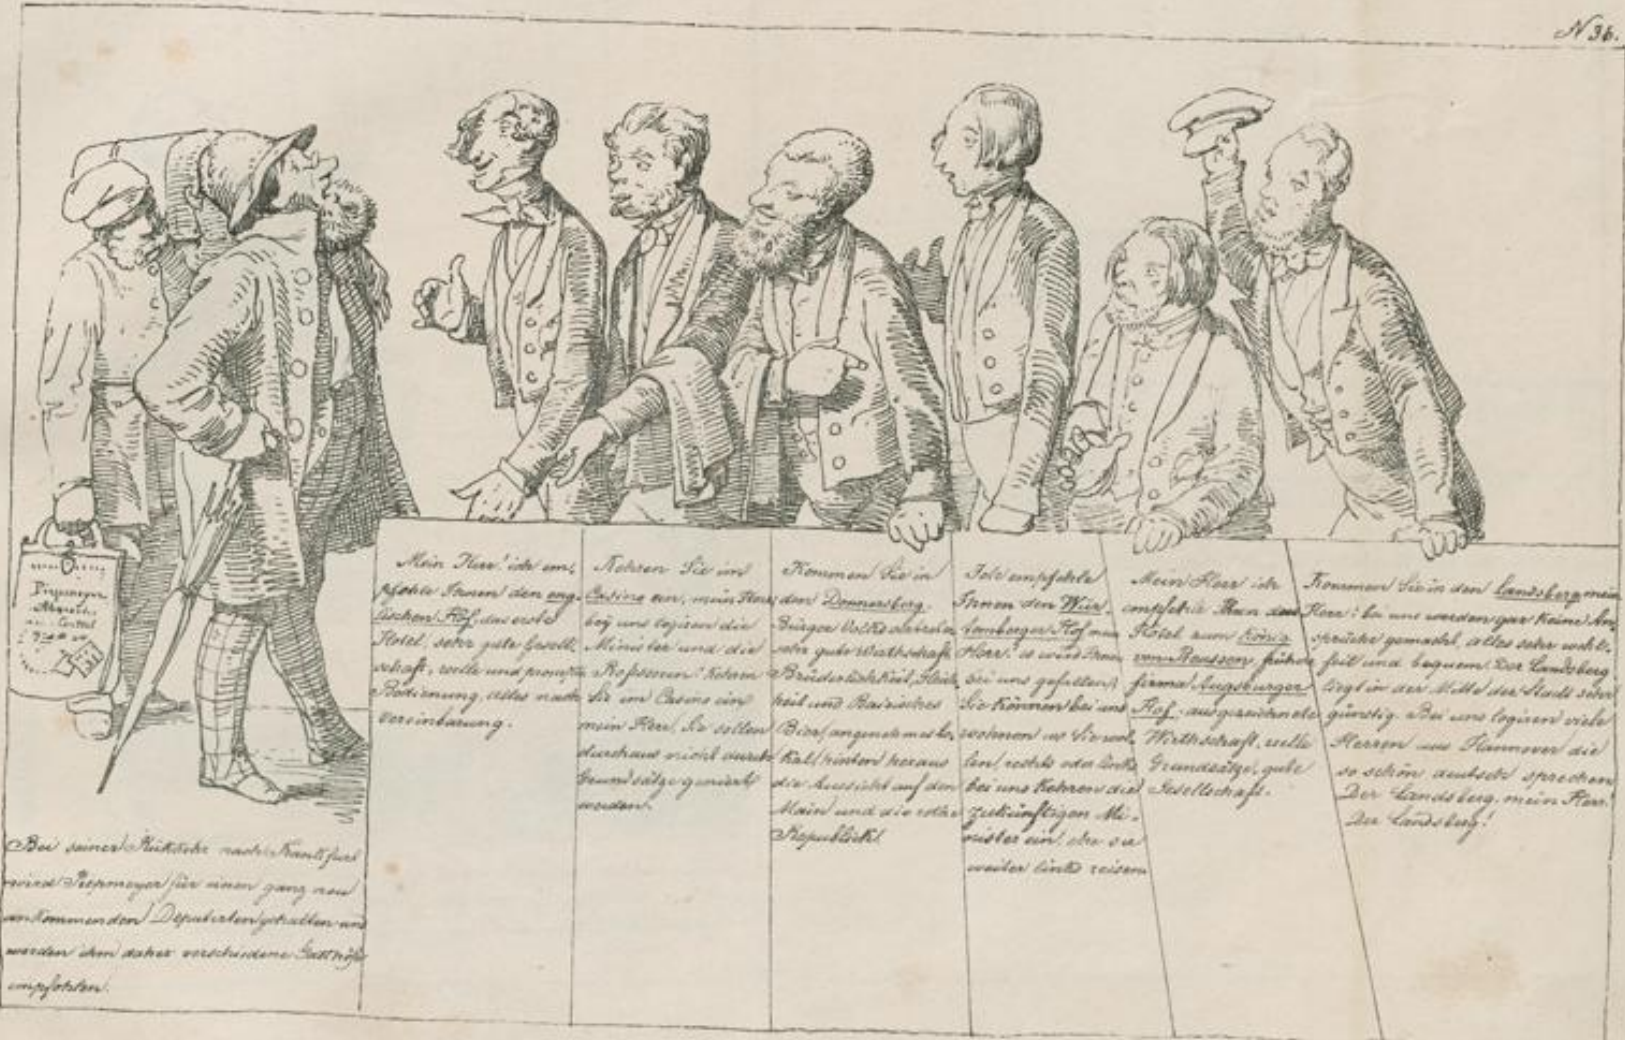 N 36.
Piepmeyer
Bei seiner Rükkehr nach Frankfurt
wird Piepmeyer für einen ganz neu
ankommenden Deputirten gehalten und
werden ihm daher verschiedene Gasthöfe
empfohlen.
Mein Herr! ich em-
pfehle Ihnen den eng-
lischen Hof, das erste
Hotel, sehr gute Gesell-
schaft, reelle und prompte
Bedienung, alles nach
Vereinbarung.
Kehren Sie im
Casino ein, mein Herr,
bey uns logiren die
Minister und die
Professoren! Kehren
Sie im Casino ein
mein Herr, Sie sollen
durchaus nicht durch
Grundsätze genirt
werden.
Kommen Sie in
den Donnersberg.
Bürger Volksvertreter
sehr gute Wirthschaft
Brüderlichkeit, Gleich-
heit und Bairisches
Bier, angenehmes Lo-
kal, hinten heraus
die Aussicht auf den
Main und die rothe
Republick!
Ich empfehle
Ihnen den Wür-
temberger Hof mein
Herr! es wird Ihnen
bei uns gefallen,
Sie können bei uns
wohnen wo Sie wol-
len, rechts oder links
bei uns kehren die
zukünftigen Mi-
nister ein, ehe sie
weiter links reisen
Mein Herr ich
empfehle Ihnen das
Hotel zum König
von Preussen, frühere
firma Augsburger
Hof, ausgezeichnete
Wirthschaft, reelle
Grundsätze, gute
Gesellschaft.
Kommen Sie in den Landsberg mein
Herr! bei uns werden gar keine An-
sprüche gemacht, alles sehr wohl-
feil und bequem. Der Landsberg
liegt in der Mitte der Stadt sehr
günstig. Bei uns logiren viele
Herren aus Hannover die
so schön deutsch sprechen
Der Landsberg, mein Herr!
Der Landsberg!